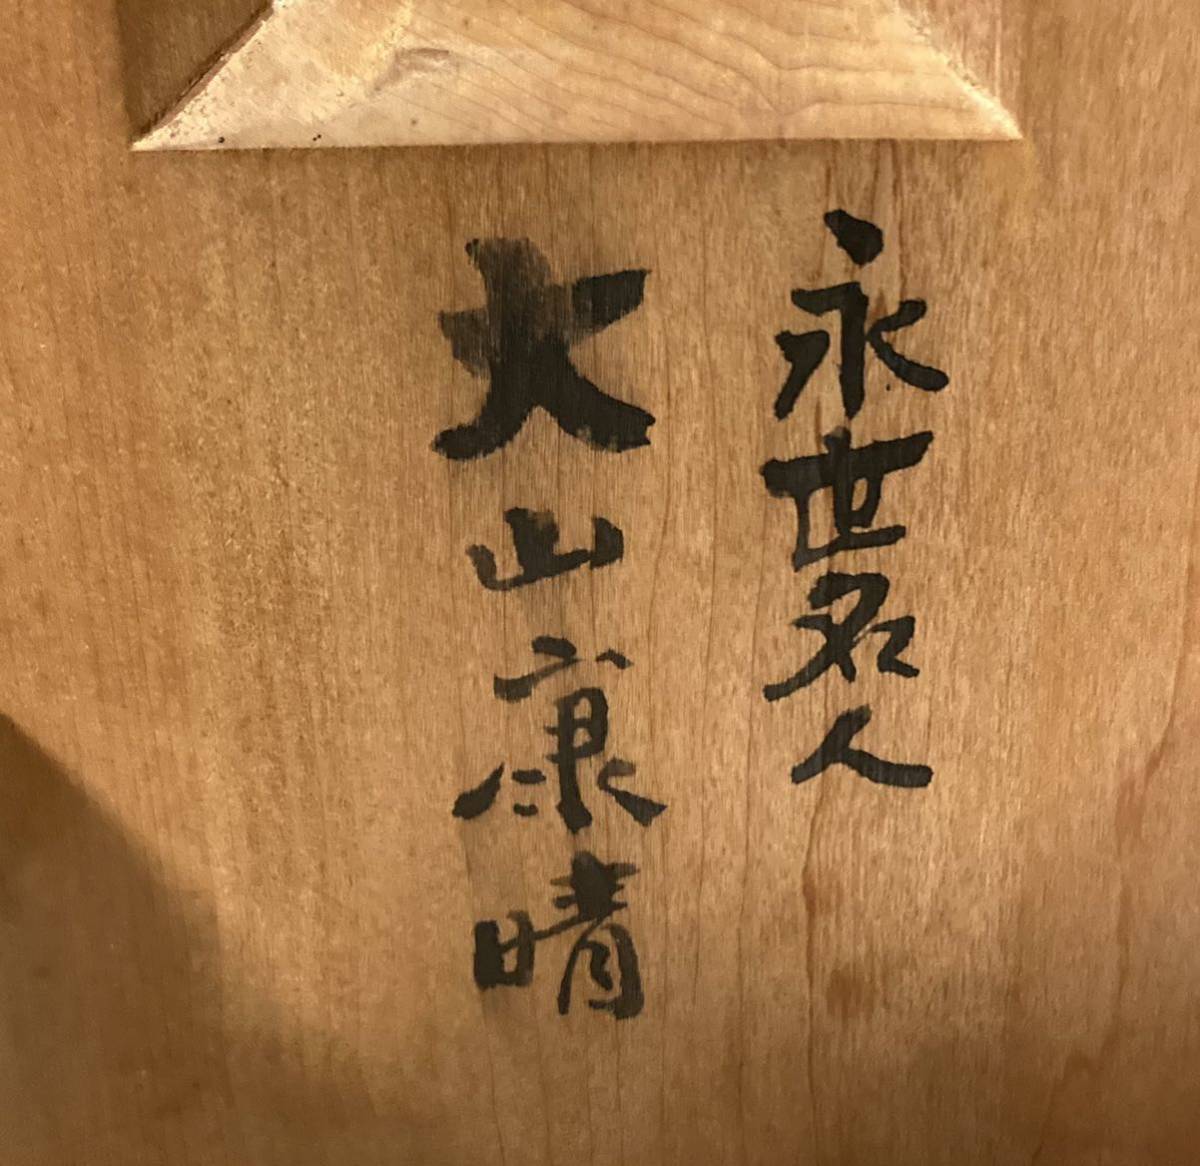 永世名人
大山康晴